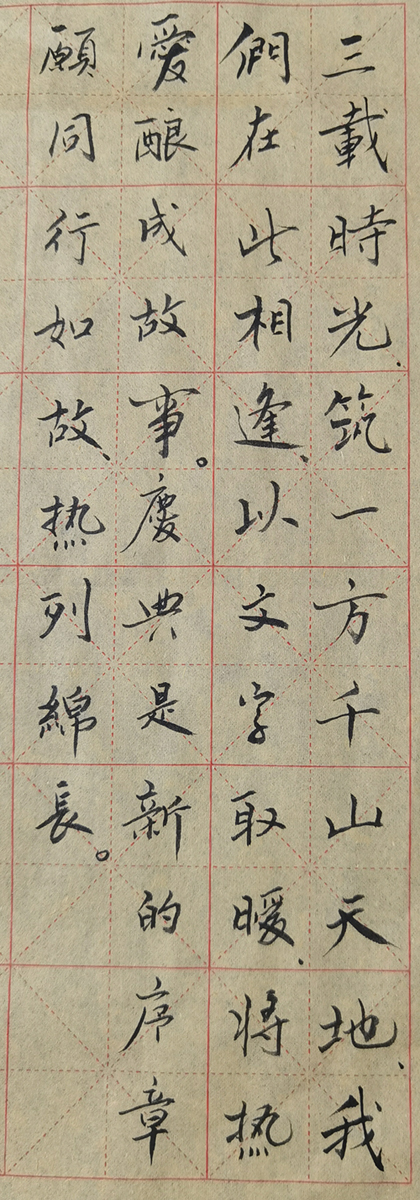 三載時光、筑一方千山天地、我
們在此相逢、以文字取暖、将热
愛酿成故事。慶典是新的序章
願同行如故、热列綿長。